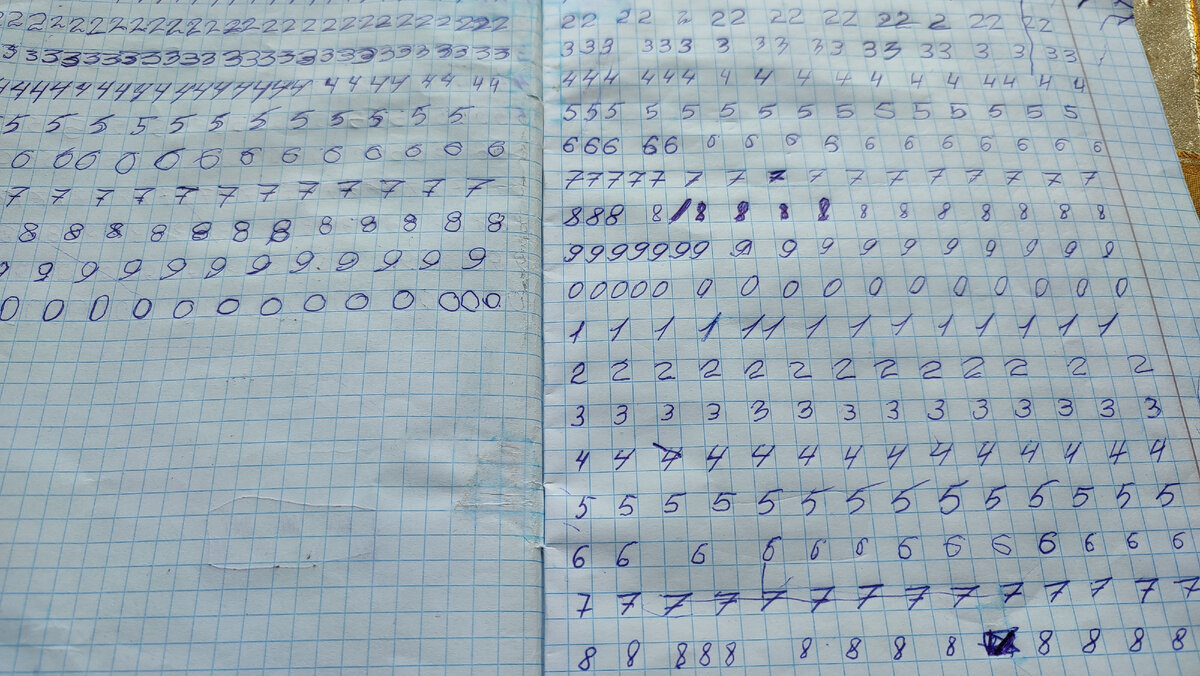 22222222222222222222222222
33333333333333333333333333
444444444444444444 4444 44 44
5 5 5 5 5 5 5 5 5 5 5 5
6 66 6 6 6 6 6 6 6 6 6 6
7 7 7 7 7 7 7 7 7 7 7 7
8 8 8 8 8 8 8 8 8 8 8 8
9 9 9 9 9 9 9 9 9 9 9 9
0 0 0 0 0 0 0 0 0 0 000
22 22 2 22 22 22 22 2 22 22
333 333 3 33 33 33 33 3 3 33
444 444 4 4 4 4 4 4 4 44 4 4
555 5 5 5 5 5 5 5 5 5 5 5 5
666 66 6 6 6 6 6 6 6 6 6 6 6
77777 7 7 7 7 7 7 7 7 7 7 7
888 8 8 8 8 8 8 8 8 8 8 8 8
9999999 9 9 9 9 9 9 9 9 9 9
00000 0 0 0 0 0 0 0 0 0 0 0
1 1 1 1 11 1 1 1 1 1 1 1 1
2 2 2 2 2 2 2 2 2 2 2 2 2
3 3 3 3 3 3 3 3 3 3 3 3 3 3
4 4 4 4 4 4 4 4 4 4 4 4 4 4
5 5 5 5 5 5 5 5 5 5 5 5 5 5
6 6 6 6 6 6 6 6 6 6 6 6 6
7 7 7 7 7 7 7 7 7 7 7 7 7 7
8 8 888 8 8 8 8 8 8 8 8